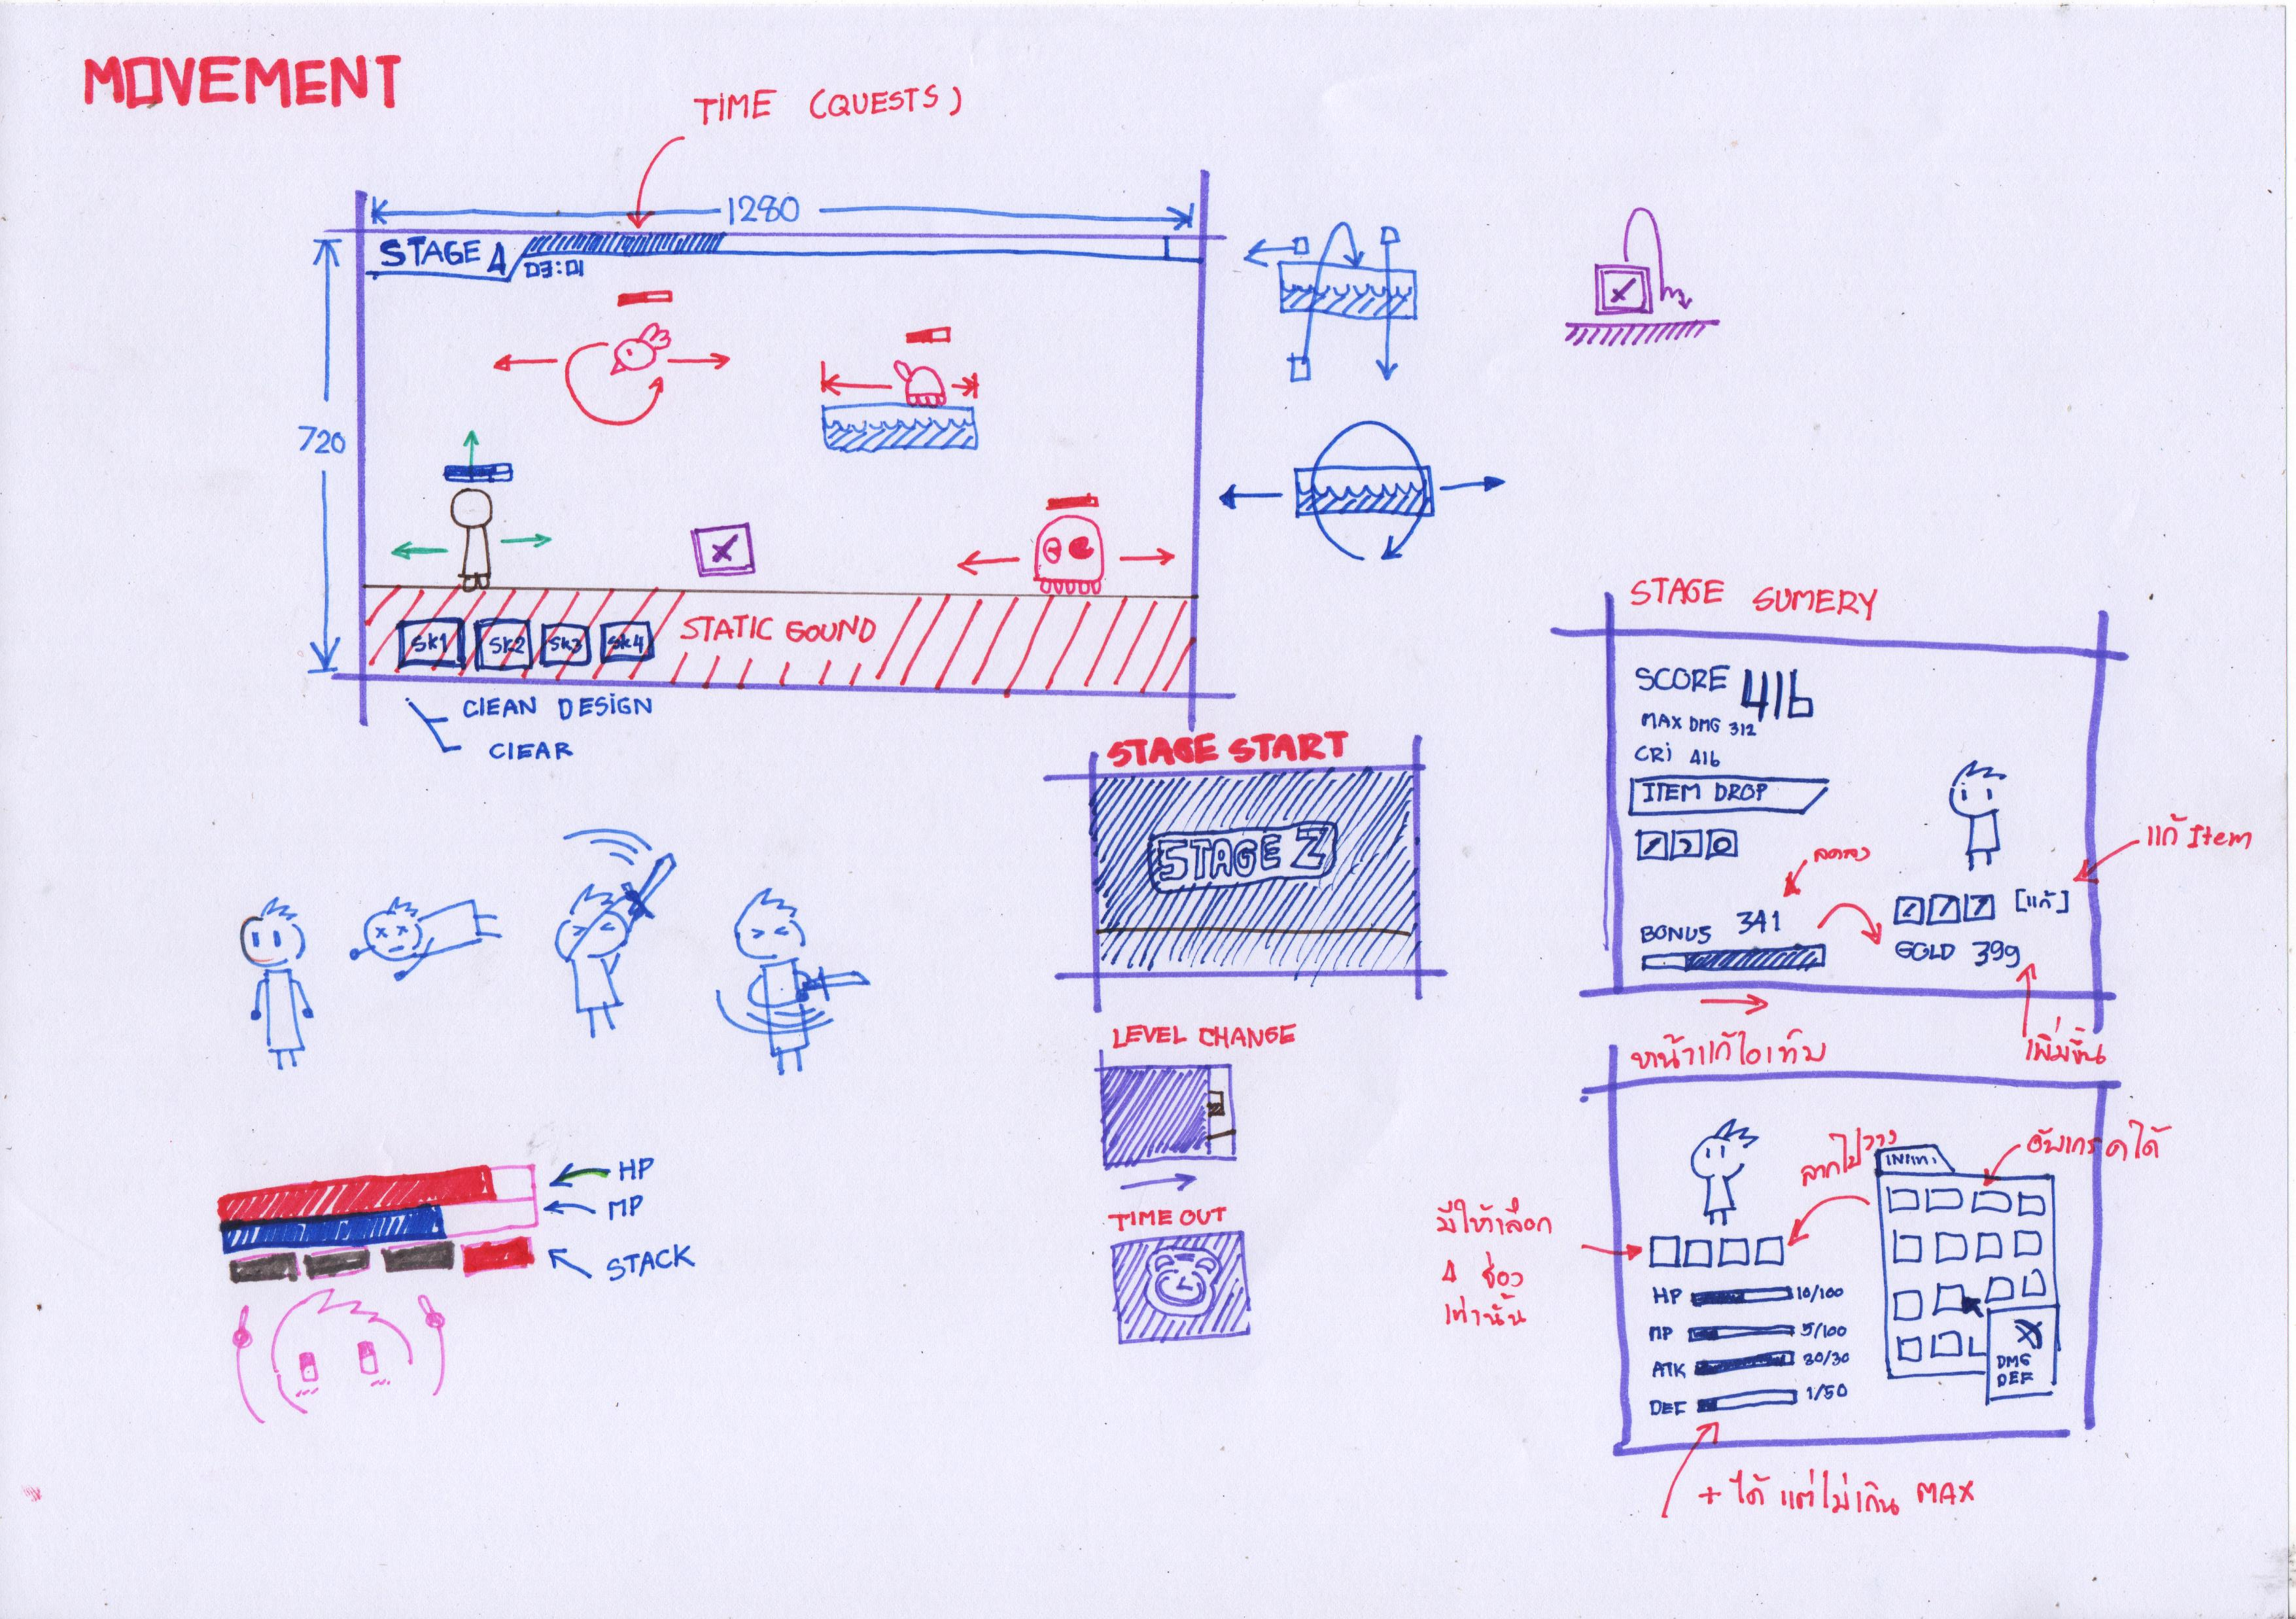 MOVEMENT
TIME (QUESTS)
1280
STAGE 1
03:01
720
SK1 SK2 SK3 SK4
STATIC GOUND
CLEAN DESIGN
CLEAR
STAGE START
STAGE 2
LEVEL CHANGE
TIME OUT
HP
MP
STACK
STAGE SUMERY
SCORE 416
MAX DMG 312
CRI 416
ITEM DROP
ลดลง
แก้ Item
BONUS 341
[แก้]
GOLD 399
เพิ่มขึ้น
หน้าแก้ไอเท็ม
ลากไปวาง
อัพเกรดได้
มีให้เลือก
4 ช่อง
เท่านั้น
HP 10/100
MP 5/100
ATK 30/30
DEF 1/50
DMG
DEF
+ ได้ แต่ไม่เกิน MAX